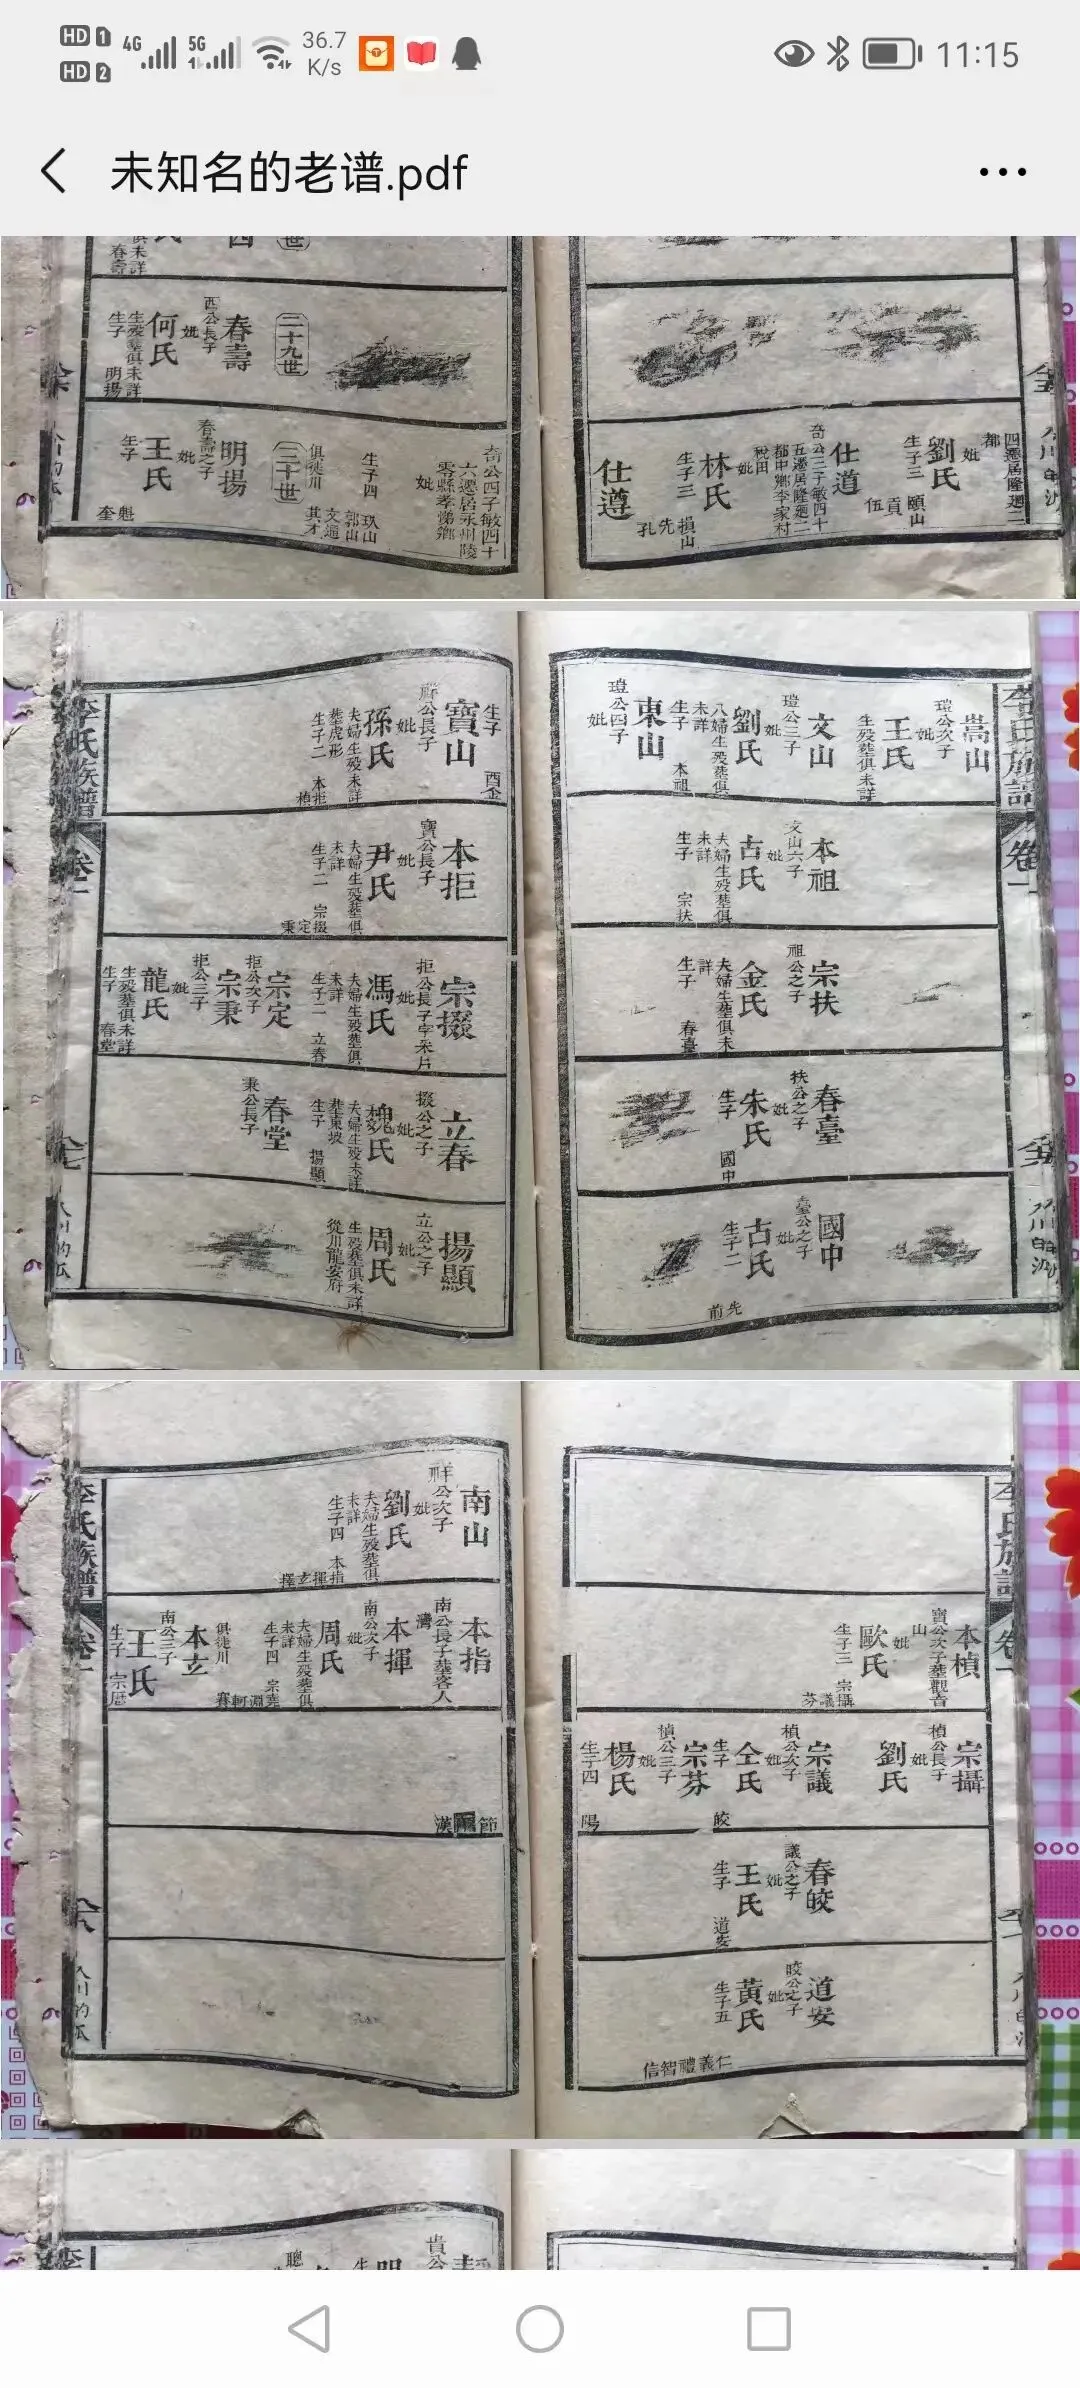 HD 1
HD 2
4G
5G
36.7
K/s
11:15
未知名的老谱.pdf
四遷居隆廻二
都
妣
劉氏
生子三
願山
貢
伍
仕道
奇公三子敏四十
五遷居隆廻二
都中鄉李家村
稅田
妣
林氏
生子三
損山
先
孔
仕遵
奇公四子敏四十
六遷居永州陵
零縣孝悌鄉
妣
生子四
玖山
郭山
文通
其才
俱徙川
二十九世
春壽
西公長子
妣
何氏
生殁塟俱未詳
生子
明揚
三十世
明揚
春壽之子
妣
王氏
生子
魁
奎
李氏族譜
卷一
嵩山
瑄公次子
妣
王氏
生殁塟俱未詳
文山
瑄公三子
妣
劉氏
八婦生殁塟俱
未詳
生子
本祖
東山
瑄公四子
妣
本祖
文山六子
妣
古氏
夫婦生殁塟俱
未詳
生子
宗扶
宗扶
祖公之子
妣
金氏
夫婦生塟俱未
詳
生子
春臺
春臺
扶公之子
妣
朱氏
生子
國中
國中
臺公之子
妣
古氏
生子二
先
前
生子
酉金
寶山
公長子
妣
孫氏
夫婦生殁未詳
塟虎形
生子二
本拒
楨
本拒
寶公長子
妣
尹氏
夫婦生殁塟俱
未詳
生子二
宗掇
定
秉
宗掇
拒公長子字采片
妣
馮氏
夫婦生殁塟俱
未詳
生子二
立春
宗定
拒公次子
宗秉
拒公三子
妣
龍氏
生殁塟俱未詳
生子
春堂
立春
掇公之子
妣
魏氏
夫婦生殁未詳
塟東坡
生子
揚顯
春堂
秉公長子
揚顯
立公之子
妣
周氏
生殁塟俱未詳
從川龍安府
李氏族譜
卷一
李氏族譜
卷一
本楨
寶公次子塟觀音
山
妣
歐氏
生子三
宗攝
議
芬
宗攝
楨公長子
妣
劉氏
宗議
楨公次子
妣
仝氏
生子
皎
宗芬
楨公三子
妣
楊氏
生子四
陽
春皎
議公之子
妣
王氏
生子
道安
道安
皎公之子
妣
黃氏
生子五
仁義禮智信
南山
祥公次子
妣
劉氏
夫婦生殁塟俱
未詳
生子四
本指
揮
玄
擇
本指
南公長子塟客人
灣
本揮
南公次子
妣
周氏
夫婦生殁塟俱
未詳
生子四
宗堯
淵
軻
賽
俱徙川
本玄
南公三子
妣
王氏
生子
宗歷
節
漢
李氏族譜
卷一
貴公
聰